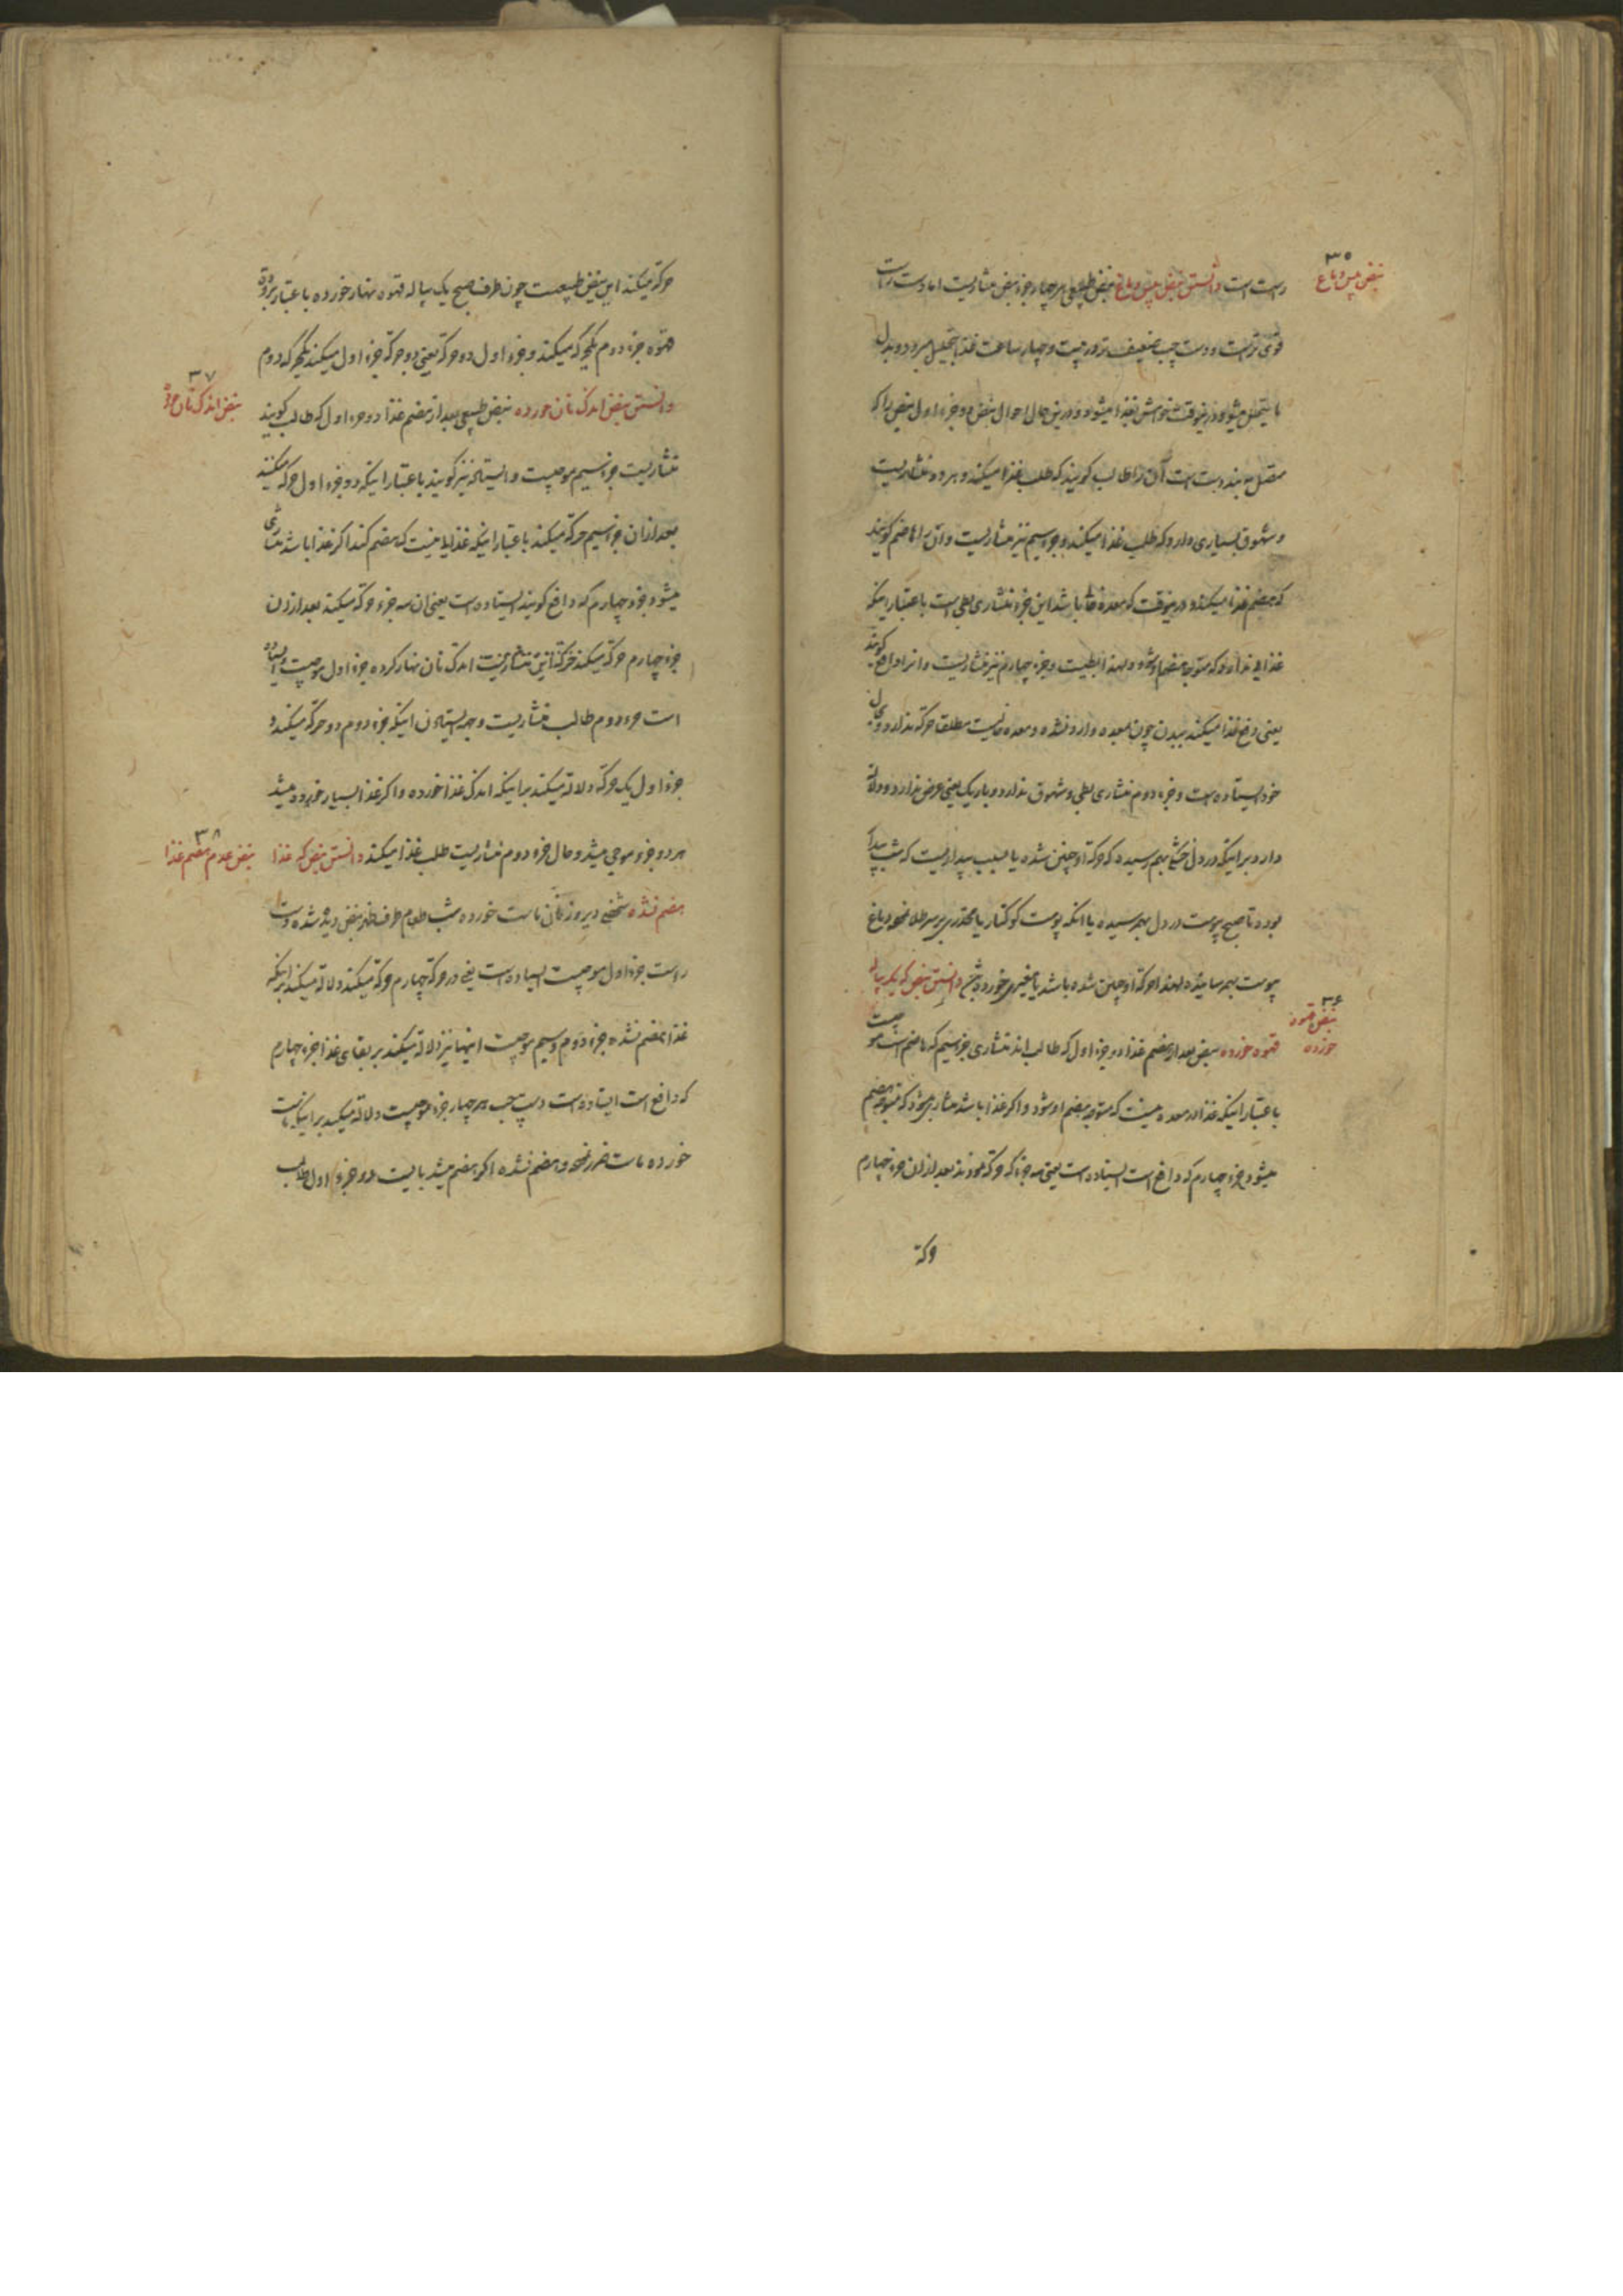 ۳۵
نبض یبس دماغ
راست است دانستن نبض یبس دماغ نبض طبیعی هر چهار جزء نبض منشاریست اما دست راست
قوی ترست و دست چپ ضعیف تر و در بیست و چهار ساعت غذا بتحلیل میرود و بدل
ما یتحلل میشود و در نیوقت خواهش بغذا میشود و در ین حال احوال نبض دو جزء اول نبض را که
متصل به بند دست است آن را طالب کویند که طلب غذا میکند و هر دو منشاریست
و شهوق بسیاری دارد که طلب غذا میکند و جزء سیم نیز منشاریست و آن را هاضم کویند
که هضم غذا میکند و در نیوقت که معده خالی باشد این جزء منشاری بطی است باعتبار اینکه
غذایی ندارد که متوجه هضم او شود و لهذا بطیست و جزء چهارم نیز منشاریست و انرا دافع کویند
یعنی دفع غذا میکند ببدن چون بمعده وارد نشده و معده خالیست مطلقا حرکة ندارد و بحال
خود ایستاده است و جزء دوم منشاری بطی و شهوق ندارد و باریک یعنی عرض ندارد و دلالة
دارد بر اینکه در دل خشکی بهم رسیده که حرکة او چنین شده یا بسبب بیداریست که شب بیدار
بوده تا صبح یبوست در دل بهم رسیده یا انکه پوست کوکنار یا مخدری بر سر طلا نموده دماغ
یبوست بهم رسانیده لهذا حرکة او چنین شده باشد یا مغیری خورده دانستن نبض که یک پیاله
۳۶
نبض قهوه
خورده
قهوه خورده نبض بعد از هضم غذا دو جزء اول که طالب اند منشاری جزء سیم که هاضم است موجیست
باعتبار اینکه غذا در معده نیست که متوجه هضم او شود و اکر غذا باشد منشاری میشود که متوجه هضم
میشود جزء چهارم که دافع است ایستاده است یعنی سه جزء که حرکة نمودند بعد از ان جزء چهارم
حرکة
حرکة میکند این نبض طبیعیست چون طرف صبح یک پیاله قهوه نهار خورده باعتبار برودة
قهوه جزء دوم یکحرکة میکند و جزء اول دو حرکة یعنی دو حرکة جزء اول میکند یکحرکة دوم
۳۷
نبض اندک نان خورده
دانستن نبض اندک نان خورده نبض طبیعی بعد از هضم غذا دو جزء اول که طالب کویند
منشاریست جزء سیم موجیست و ایستاده نیز کویند باعتبار اینکه دو جزء اول حرکة میکنند
بعد از ان جزء سیم حرکة میکند باعتبار اینکه غذایی نیست که هضم کند اکر غذا باشد منشاری
میشود جزء چهارم که دافع کویند ایستاده است یعنی ان سه جزء حرکة میکند بعد از ان
جزء چهارم حرکة میکند حرکة این منشاریست اندک نان نهار کرده جزء اول موجیست ایستاده
است جزء دوم طالب منشاریست وجه ایستادن اینکه جزء دوم دو حرکة میکند و
جزء اول یک حرکة دلالة میکند بر اینکه اندک غذا خورده و اکر غذا بسیار خورده میشد
هر دو جزء موجی میشد و حال جزء دوم منشاریست طلب غذا میکند دانستن نبض که غذا
۳۸
نبض عدم هضم غذا
هضم نشده شخصی دیروز نان ماست خورده شب طعام طرف ظهر نبض دیده شده دست
راست جزء اول موجیست ایستاده است یعنی در حرکة چهارم حرکة میکند دلالة میکند بر اینکه
غذا هضم نشده جزء دوم و سیم موجیست اینها نیز دلالة میکند بر بقای غذا جزء چهارم
که دافع است ایستاده است دست چپ هر چهار جزء موجیست دلالة میکند بر اینکه ماست
خورده ماست ضرر نموده و هضم نشده اکر هضم میشد بایست دو جزء اول طالب